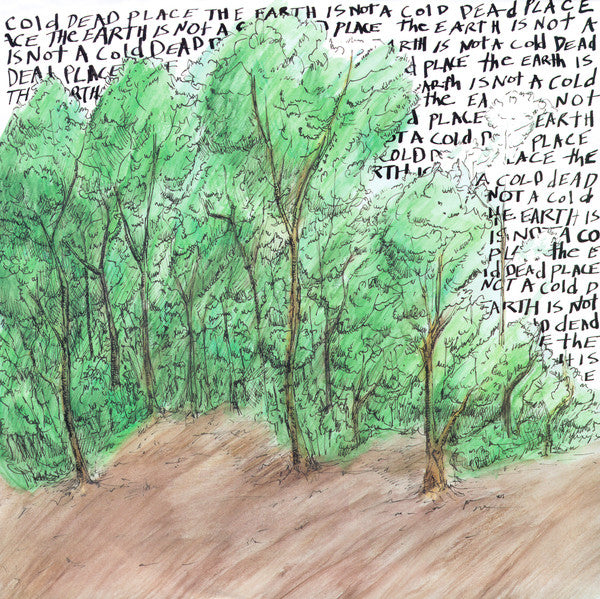 Cold DEAD PLACE THE EARTH IS Not A Cold DEAd PLACE
ACE The EARTH IS NOT A COLD DEAD PLACE the EARTH IS NOT A
IS Not A Cold DEAD RTH IS NoT A Cold DEAd
DEAd PLACE d PLACE the EARTH IS
THE EARTH IS NOt A COLD
the EA NOT
PLACE EARTH
OT A COLD PLACE
COLD LACE the
RTH A COLD DEAD
NOT A Cold
HE EARTH IS
IS A CO
the E
ld DEAd PLACE
NOT A Cold D
EARTH IS NoT
D dead
E the
IS
E